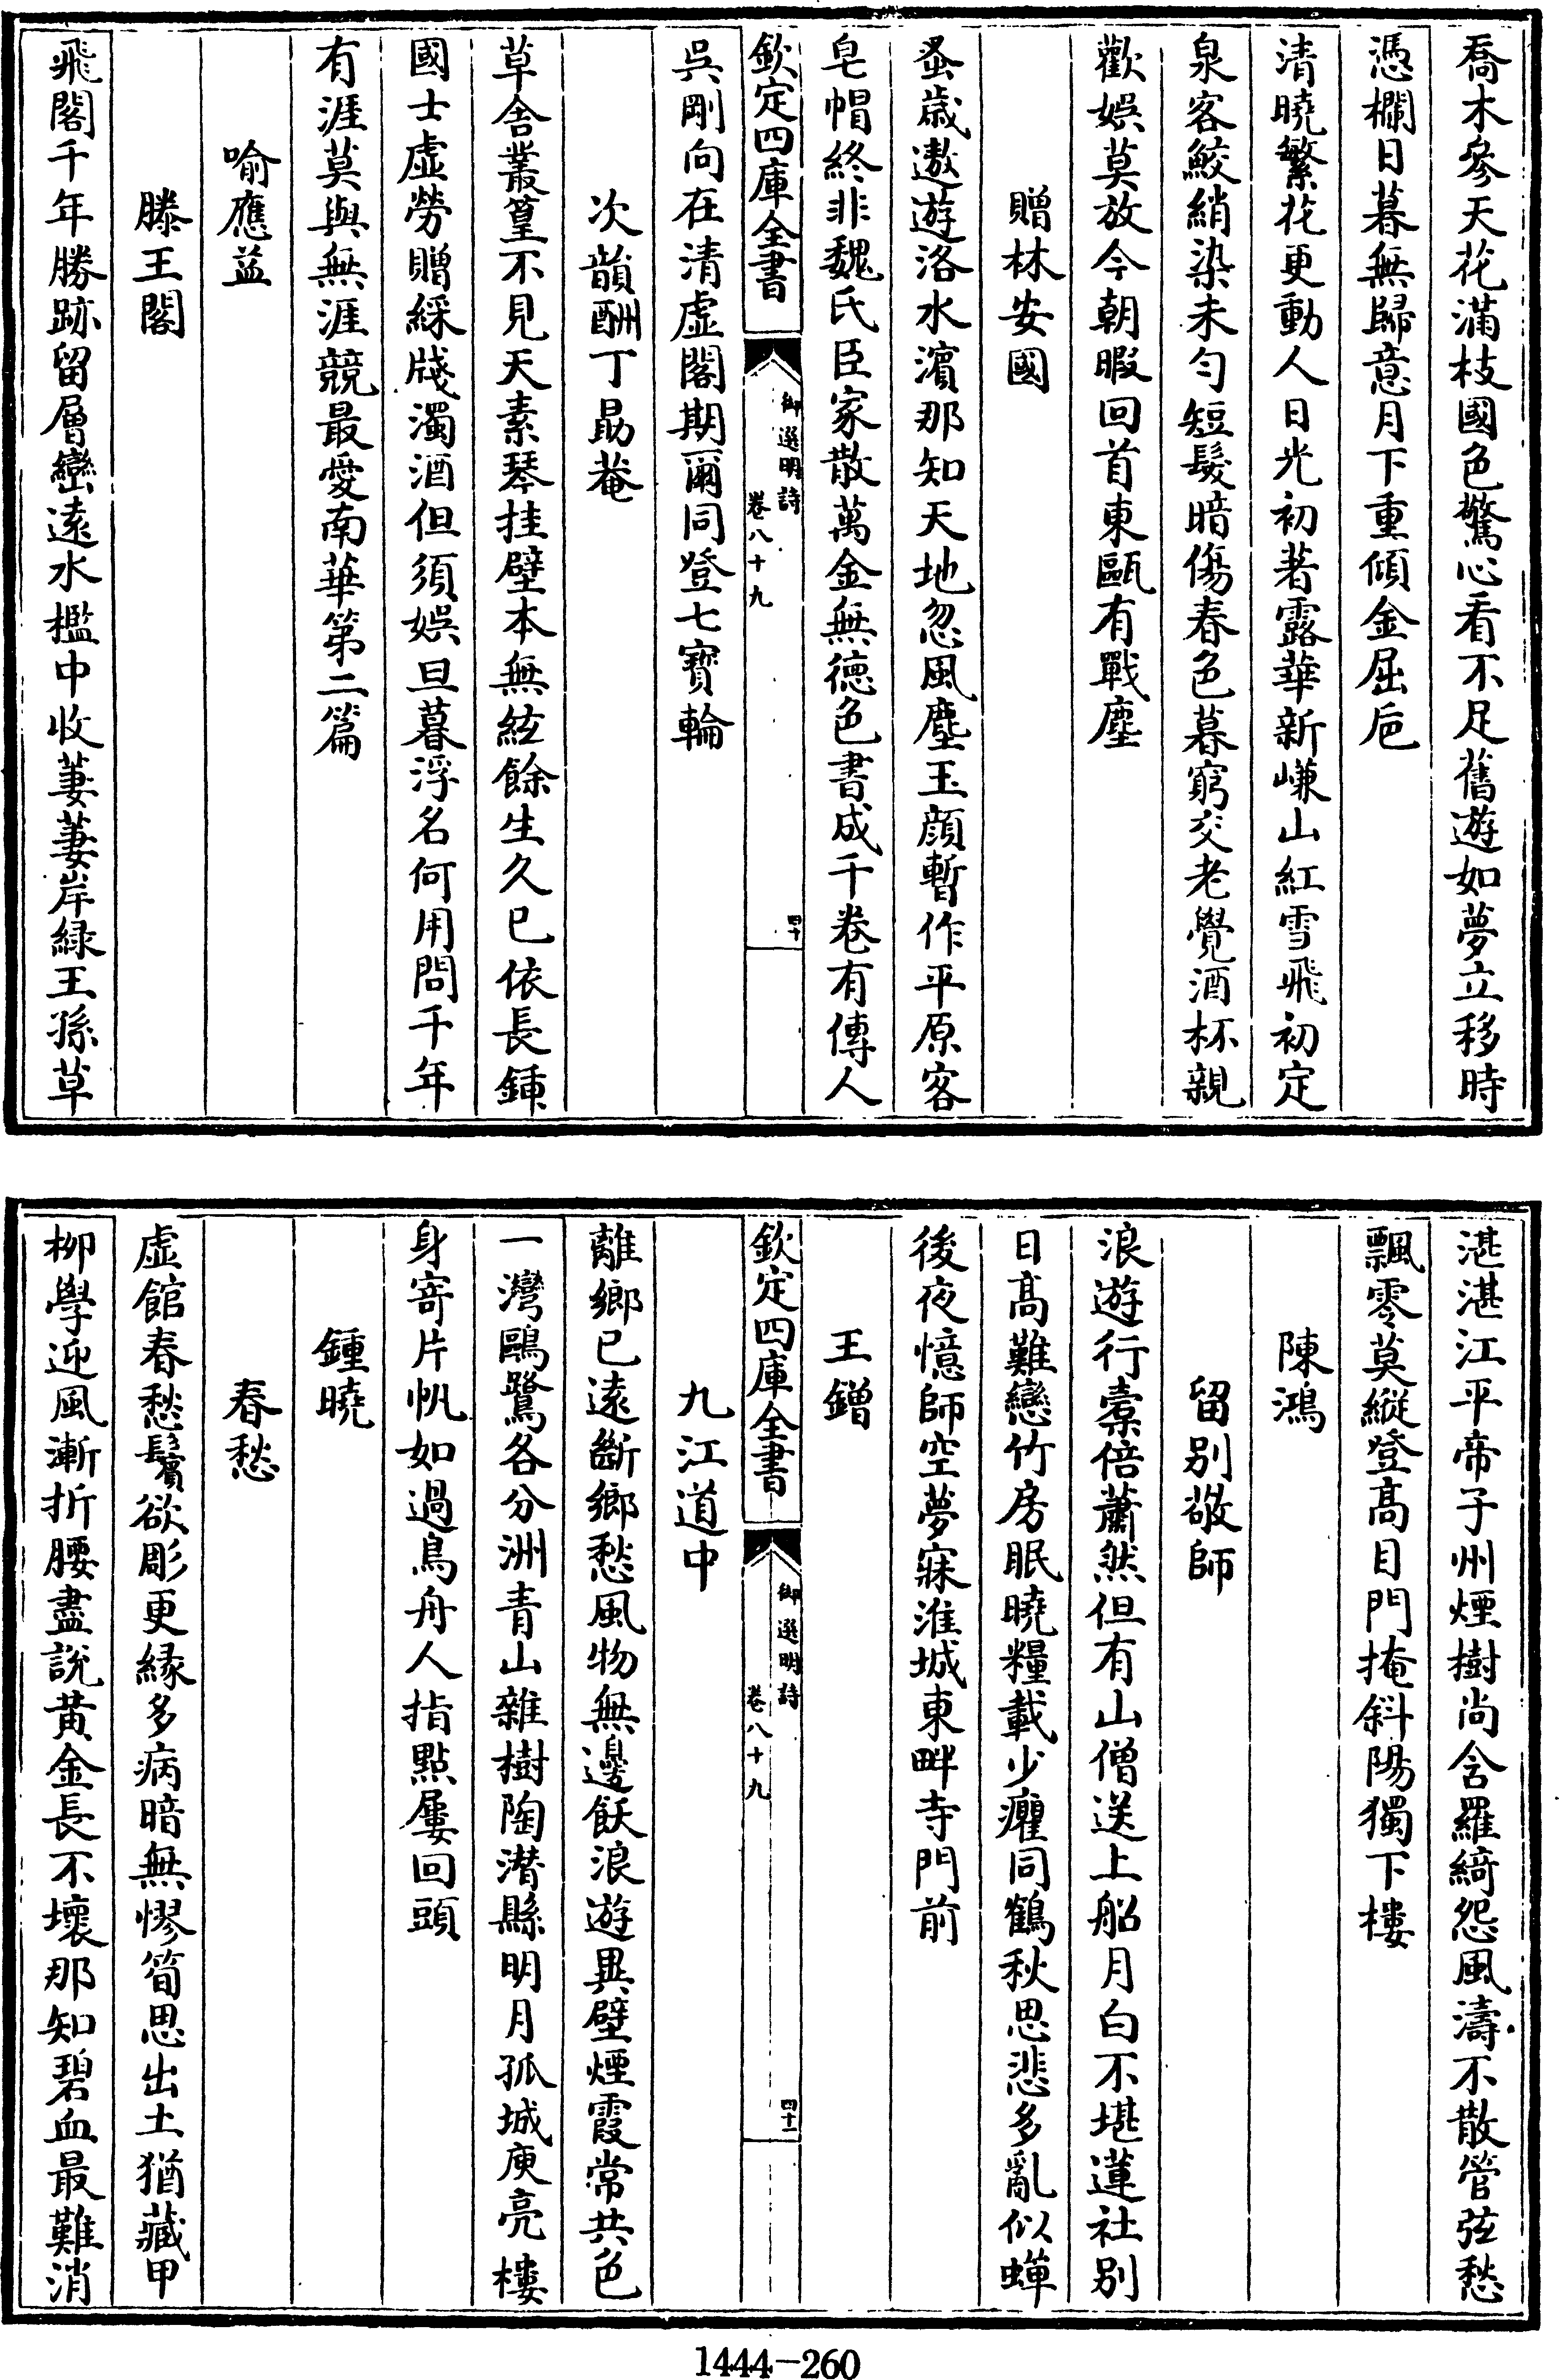 喬木參天花滿枝國色驚心看不足舊遊如夢立移時
憑欄日暮無歸意月下重傾金屈卮
清曉繁花更動人日光初著露華新嵰山紅雪飛初定
泉客鮫綃染未勻短髮暗傷春色暮窮交老覺酒杯親
歡娛莫放今朝暇回首東甌有戰塵
贈林安國
蚤歲遨遊洛水濱那知天地忽風塵玉顔暫作平原客
皂帽終非魏氏臣家散萬金無德色書成千卷有傳人
欽定四庫全書
御選明詩
卷八十九
四十
吳剛向在清虛閣期爾同登七寶輪
次韻酬丁勗菴
草舍叢篁不見天素琴挂壁本無絃餘生久已依長鍤
國士虛勞贈綵牋濁酒但須娛旦暮浮名何用問千年
有涯莫與無涯競最愛南華第二篇
喻應益
滕王閣
飛閣千年勝跡留層巒遠水檻中收萋萋岸緑王孫草
湛湛江平帝子州煙樹尚含羅綺怨風濤不散管弦愁
飄零莫縱登高目門掩斜陽獨下樓
陳鴻
留别敬師
浪遊行橐倍蕭然但有山僧送上船月白不堪蓮社别
日高難戀竹房眠曉糧載少癯同鶴秋思悲多亂似蟬
後夜憶師空夢寐淮城東畔寺門前
王鏳
欽定四庫全書
御選明詩
卷八十九
四十一
九江道中
離鄉已遠斷鄉愁風物無邊飫浪遊異壁煙霞常共色
一灣鷗鷺各分洲青山雜樹陶潜縣明月孤城庾亮樓
身寄片帆如過鳥舟人指點屢回頭
鍾曉
春愁
虛館春愁鬢欲彫更緣多病暗無憀筍思出土猶藏甲
栁學迎風漸折腰盡說黄金長不壞那知碧血最難消
1444-260